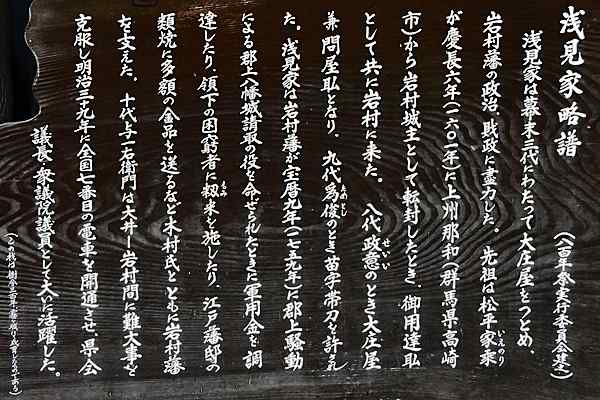 浅見家略譜
(八百年祭実行委員会建之)
浅見家は幕末三代にわたって大庄屋をつとめ、
岩村藩の政治、財政に尽力した。先祖は松平家乗
いえのり
が慶長六年(一六〇一年)に上州那和(群馬県高崎
市)から岩村城主として転封したとき、御用達職
として共に岩村に来た。八代政意のとき大庄屋
せいい
兼問屋職となり、九代為俊のとき苗字帯刀を許され
ためとし
た。浅見家は岩村藩が宝暦九年(一七五九年)に郡上騒動
による郡上八幡城請取の役を命ぜられたときに軍用金を調
達したり、領下の困窮者に籾米を施したり、江戸藩邸の
もみ
類焼に多額の金品を送るなど木村氏とともに岩村藩
を支えた。十代与一右衛門は大井ー岩村間に難大事を
克服し明治三十九年に全国七番目の電車を開通させ、県会
議長、衆議院議員として大いに活躍した。